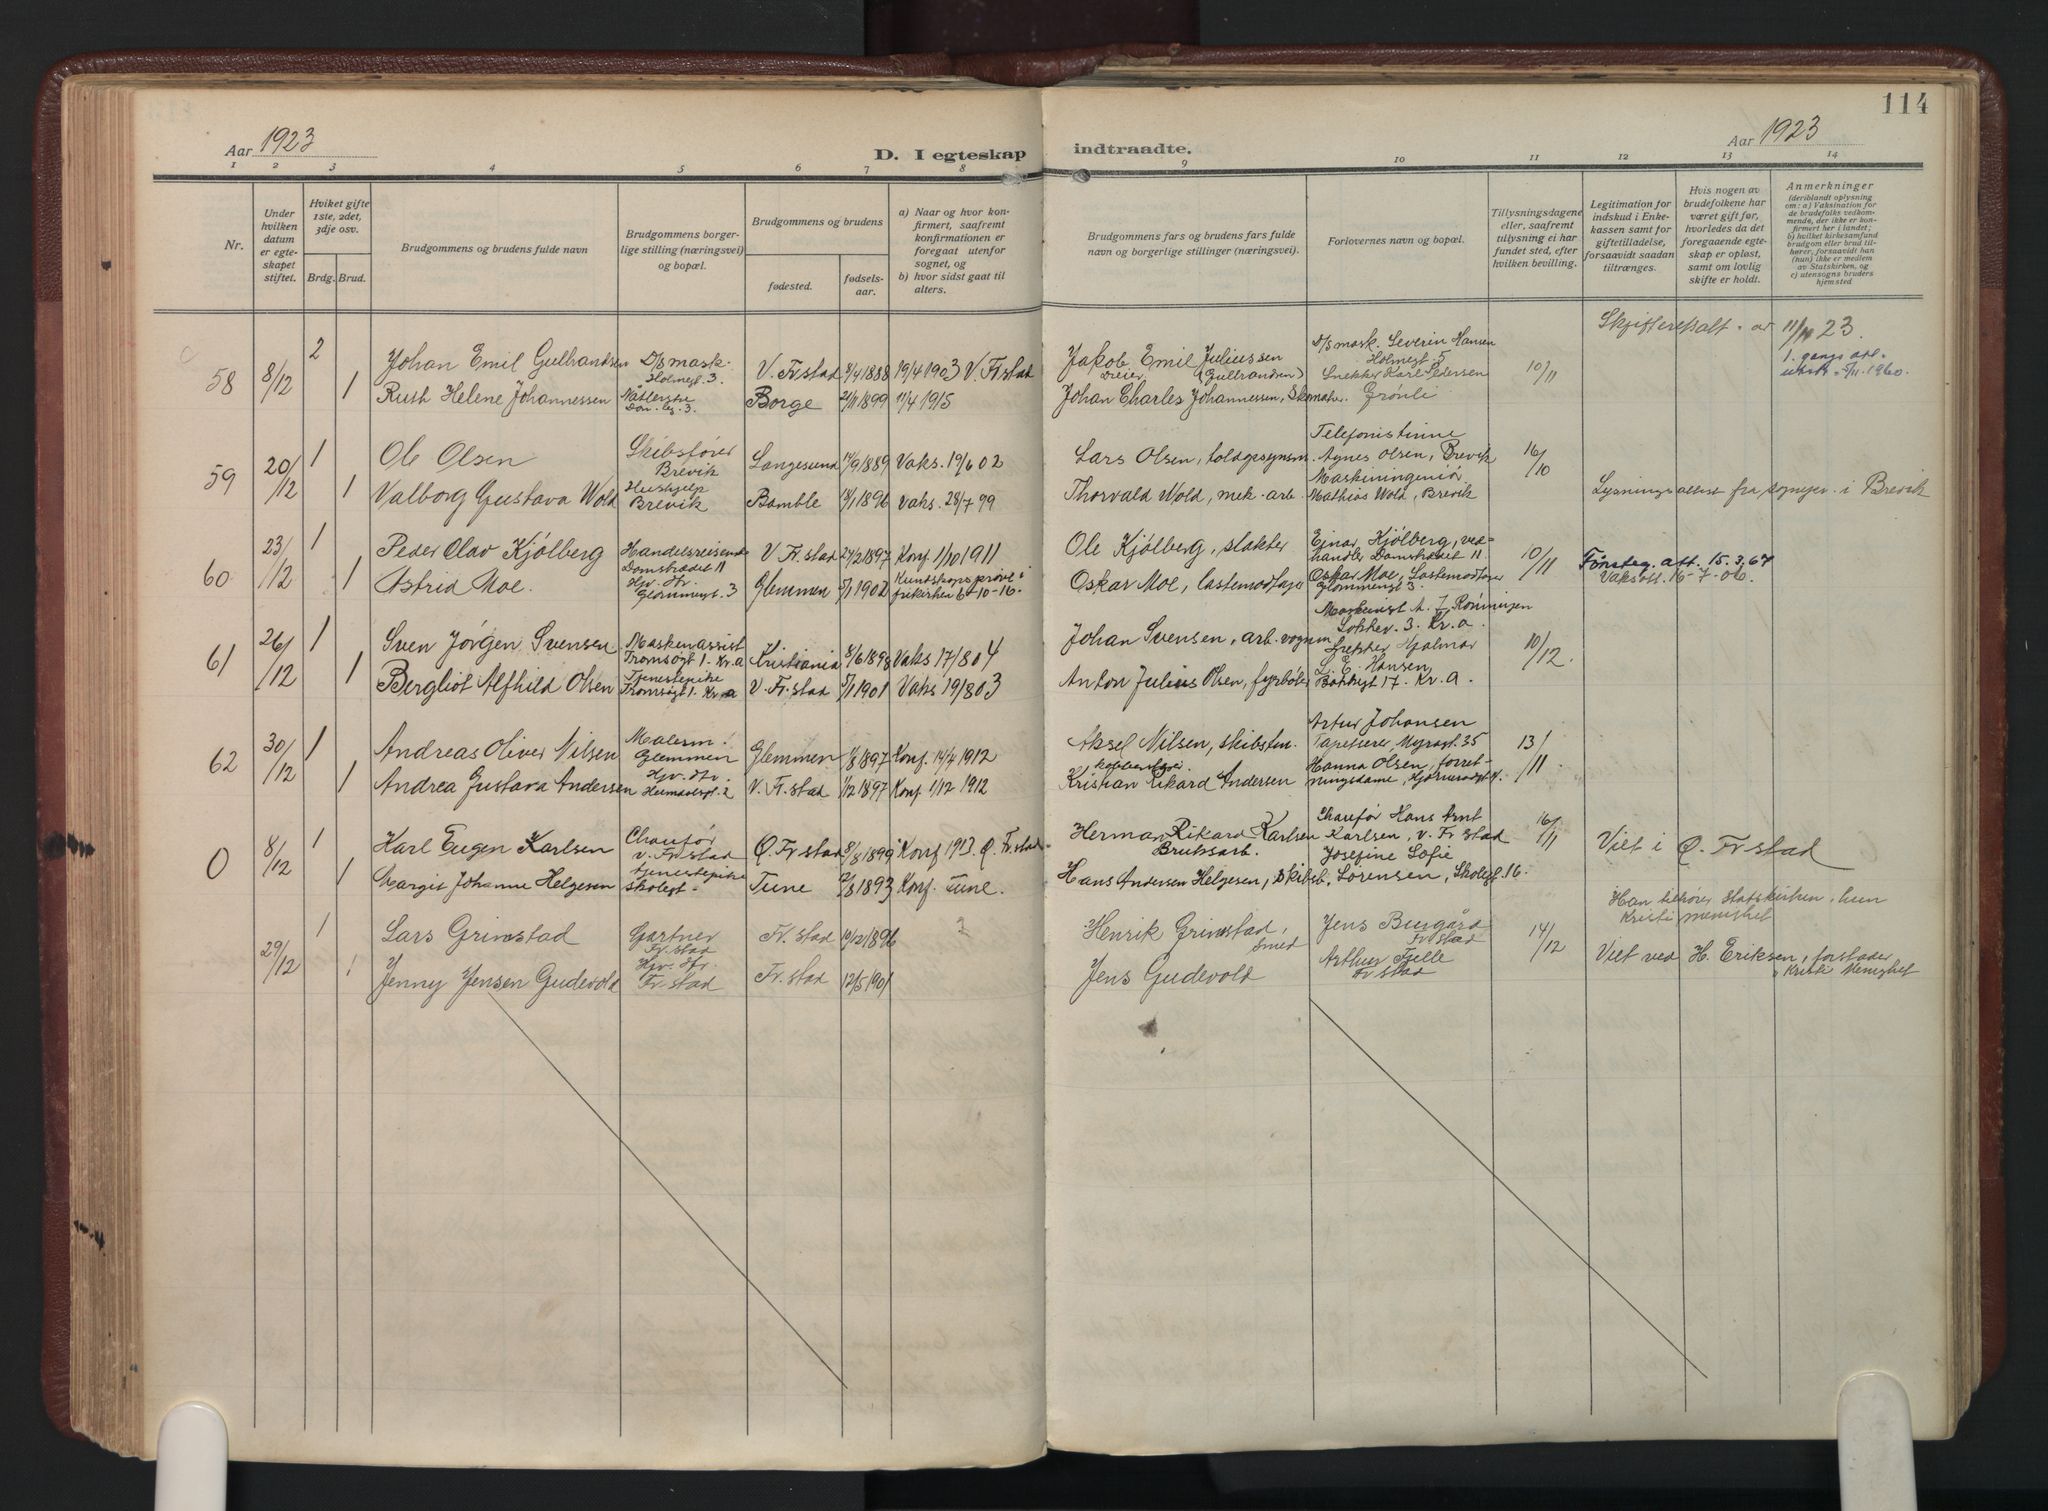 114
Aar 1923
D. I egteskap indtraadte.
Aar 1923
1 2 3 4 5 6 7 8 9 10 11 12 13 14
Nr.
Under hvilken datum er egteskapet stiftet.
Hviket gifte 1ste, 2det, 3dje osv.
Brdg. Brud.
Brudgommens og brudens fulde navn
Brudgommens borgerlige stilling (næringsvei) og bopæl.
Brudgommens og brudens
fødested.
fødselsaar.
a) Naar og hvor konfirmert, saafremt konfirmationen er foregaat utenfor sognet, og
b) hvor sidst gaat til alters.
Brudgommens fars og brudens fars fulde navn og borgerlige stillinger (næringsvei).
Forlovernes navn og bopæl.
Tillysningsdagene eller, saafremt tillysning ei har fundet sted, efter hvilken bevilling.
Legitimation for indskud i Enkekassen samt for giftetilladelse, forsaavidt saadan tiltrænges.
Hvis nogen av brudefolkene har været gift før, hvorledes da det foregaaende egteskap er opløst, samt om lovlig skifte er holdt.
Anmerkninger (deriblandt oplysning om: a) Vaksination for de brudefolks vedkommende, der ikke er konfirmert her i landet; b) hvilket kirkesamfund brudgom eller brud tilhører, forsaavidt han (hun) ikke er medlem av Statskirken, og c) utensogns bruders hjemsted
58 8/12 2 Johan Emil Gulbrandsen D/S mask. Holmegt. 3. V. Fr.stad 8/4 1888 19/4 1903 V. Fr.stad Jakob Emil Juliussen (Gulbrandsen) Dreier D/S mask. Severin Hansen Holmegt. 5 10/11 Skifteattest av 11/10 23.
1 Ruth Helene Johannessen Borge 21/11 1899 11/4 1915 Johan Charles Johannessen, Skomaker. Snekker Karl Pedersen Grønli
59 20/12 1 Ole Olsen Skibsfører Brevik Langesund 14/9 1889 Vaks. 19/6 02 Lars Olsen, toldopsynsm. Telefonistinne Agnes Olsen, Brevik 16/10
1 Valborg Gustava Wold Hushjelp Brevik Bamble 18/1 1896 Vaks. 28/7 99 Thorvald Wold, mek. arb. Maskiningeniør Mathias Wold, Brevik Lysningsattest fra sognepr. i Brevik
60 23/12 1 Peder Olav Kjølberg Handelsreisende Damstrædet 11 V. Fr.stad 24/2 1897 Konf 1/10 1911 Ole Kjølberg, slakter Einar Kjølberg, vedhandler Damstrædet 11 10/11
1 Astrid Moe. Hjv. dtr. Glommengt. 3 Glemmen 5/1 1902 Kundskapsprøve i frikirken 6-10-16. Oskar Moe, lastemodtager Oskar Moe, Lastemodtager Glommengt 3. Vaksatt. 16-7-06.
61 26/12 1 Sven Jørgen Svensen Maskinassist Tromsøgt 1. Kr.a Kristiania 8/6 1898 Vaks 17/8 04 Johan Svensen, arb. vognm 10/12.
1 Bergliot Alfhild Olsen Tjenestepike Tromsøgt 1. Kr a V. Fr.stad 5/1 1901 Vaks 19/8 03 Anton Julius Olsen, fyrbøter Hjalmar L. E. Hansen Bakkegt 17. Kr. a.
62 30/12 1 Andreas Oliver Nilsen Malerm. Glemmen Glemmen 1/8 1897 Konf. 14/4 1912 Aksel Nilsen, skibstøm. Artur Johansen Tapetserer Myragt. 35 13/11
1 Andrea Gustava Andersen Hjv. dtr. Heimdalsgt. 2 V. Fr.stad 1/12 1897 Konf 1/12 1912 Kristian Rikard Andersen Hanna Olsen, forretningsdame,
0 8/12 1 Karl Eugen Karlsen Chaufør V. Fr.stad Ø. Fr.stad 8/8 1899 Konf 1913. Ø. Fr.stad Herman Rikard Karlsen Bruksarb. Chaufør Hans Arnt Karlsen, V. Fr stad 16/11 Viet i Ø. Fr.stad
1 Margit Johanne Helgesen Tjenestepike Skolegt. Tune 1893 Konf. Tune. Hans Andersen Helgesen, Skibsb. Josefine Sofie Sørensen, Skolegt. 16.
29/12 1 Lars Grimstad Gartner Fr.stad Fr. stad 10/12 1896 Henrik Grimstad, Smed Jens Burgård Fr stad 14/12 Han tilhører Statskirken, hun Kristi menighet
1 Jenny Jensen Gudevold Hjv. dtr. Fr.stad Fr. stad 12/5 1901 Jens Gudevold Arthur Fjelle Fr stad Viet ved H. Eriksen, forstander Kristi Menighet